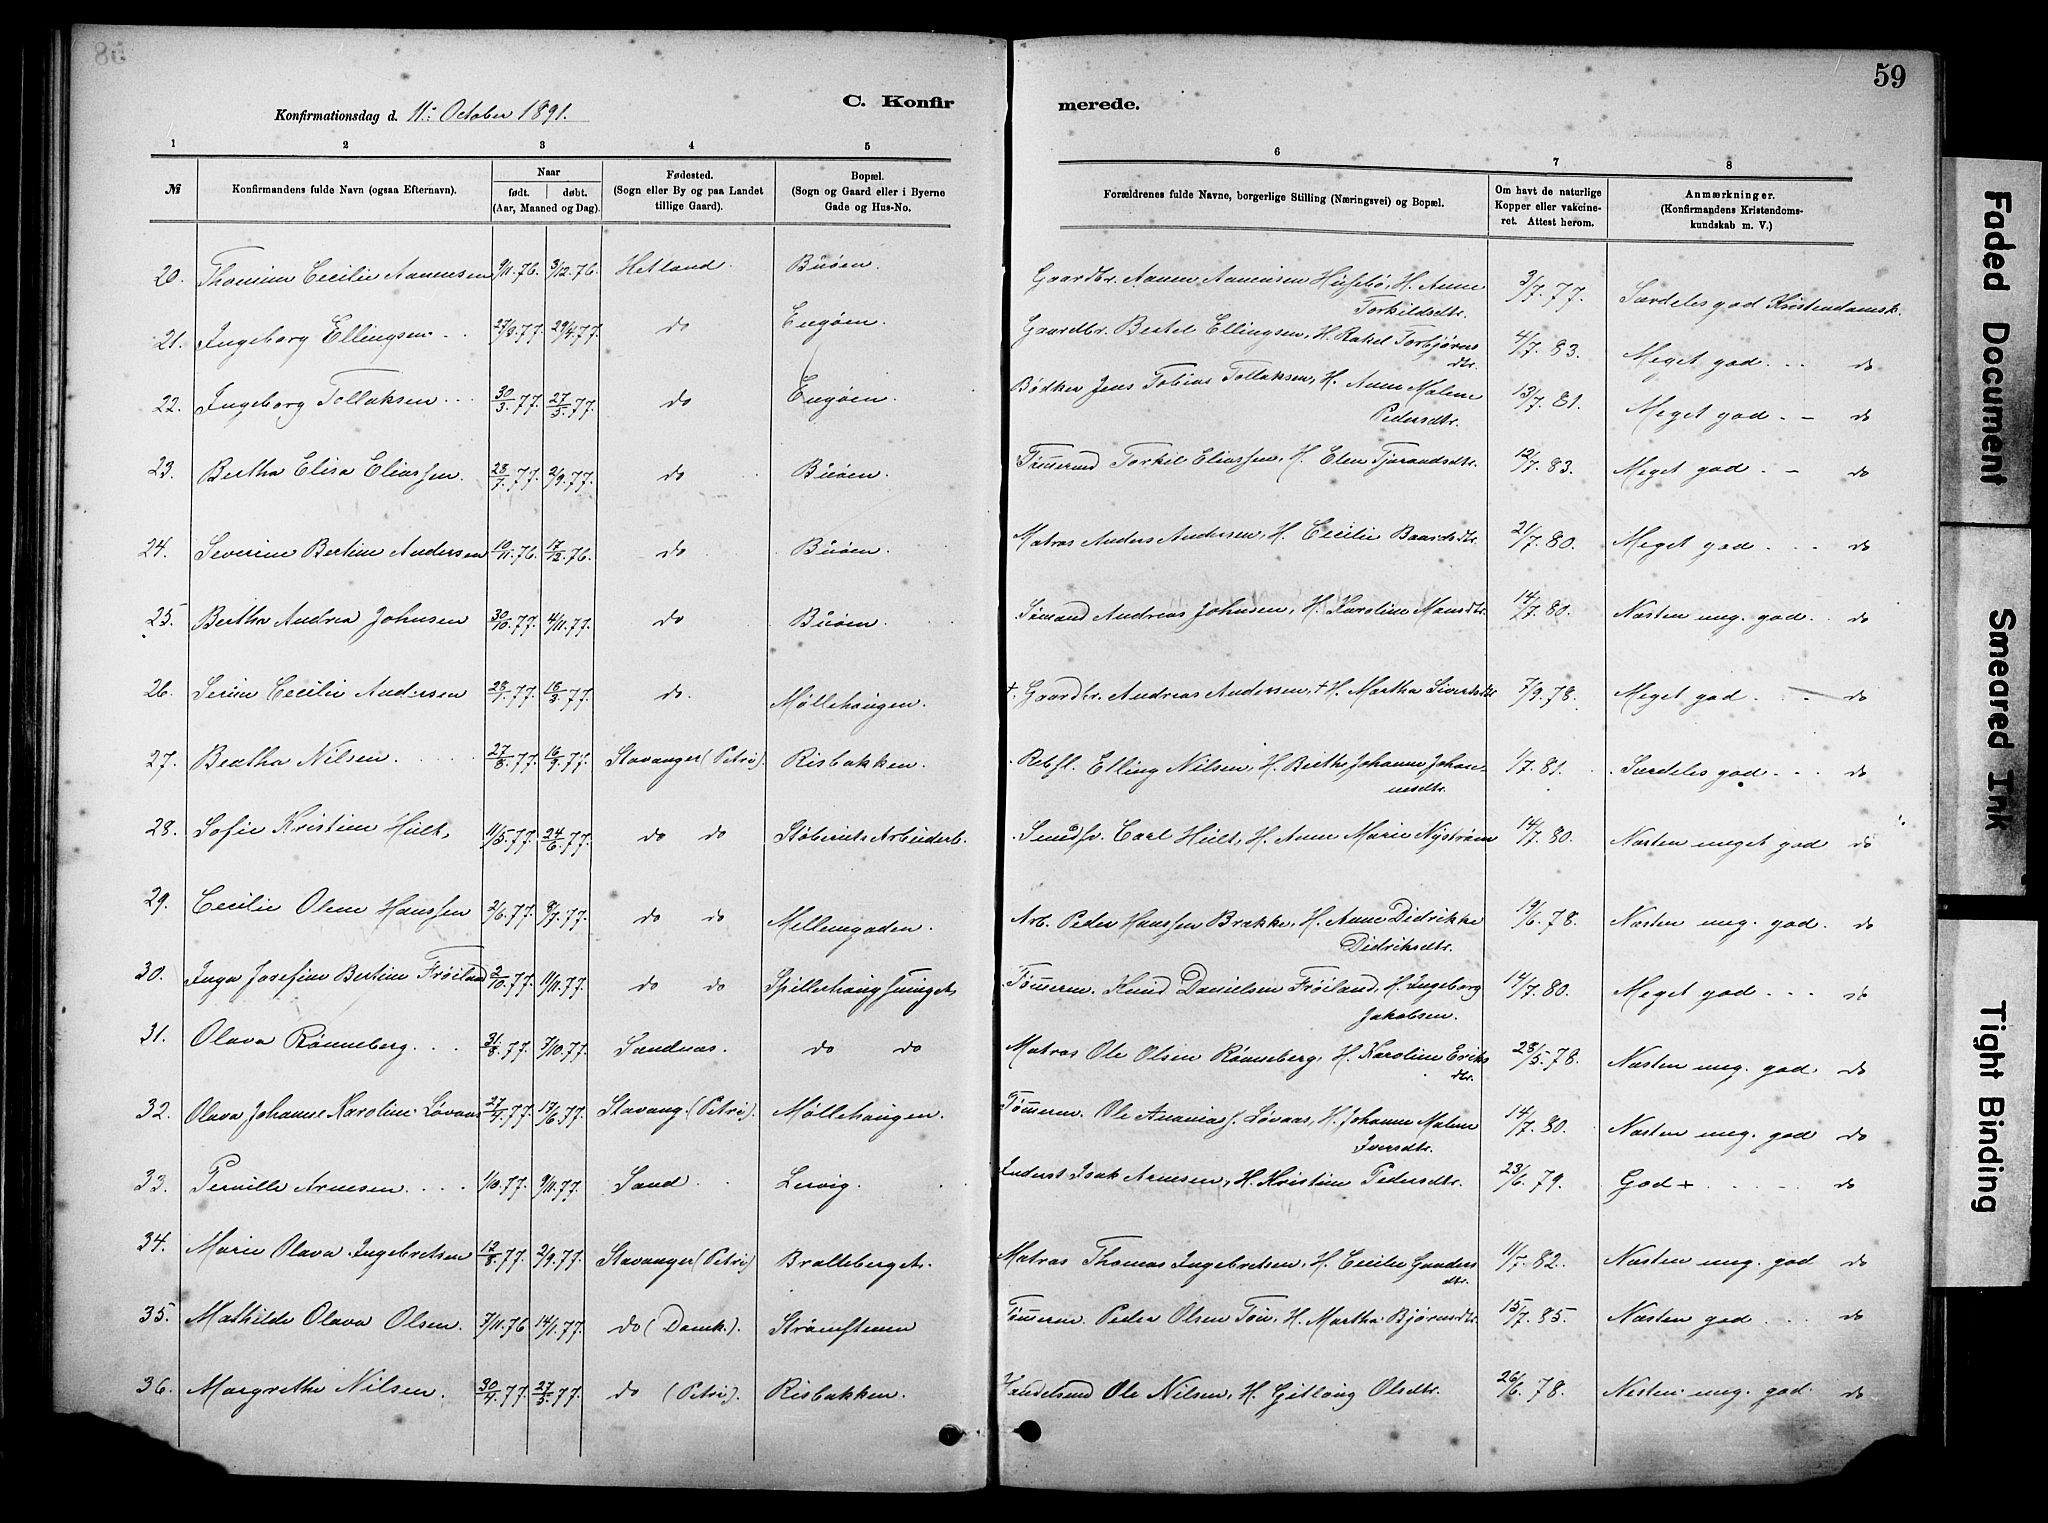 59
C. Konfirmerede.
Konfirmationsdag d. 11: October 1891.
1 2 3 4 5 6 7 8
№ Konfirmandens fulde Navn (ogsaa Efternavn). Naar født. døbt. (Aar, Maaned og Dag). Fødested. (Sogn eller By og paa Landet tillige Gaard). Bopæl. (Sogn og Gaard eller i Byerne Gade og Hus-No. Forældrenes fulde Navne, borgerlige Stilling (Næringsvei) og Bopæl. Om havt de naturlige Kopper eller vakcineret. Attest herom. Anmærkninger. (Konfirmandens Kristendomskundskab m. V.)
20. Thomine Cecilie Aanensen 9/11.76. 3/12.76. Hetland. Buøen. Gaardbr. Aanen Aanensen Husebø, H. Anne Torkildsdtr. 3/7.77. Særdeles god Kristendomsk.
21. Ingeborg Ellingsen 29/4.77. do Engøen. Gaardbr. Bertel Ellingsen, H. Rakel Torbjørnsdtr. 4/7.83. Meget god do
22. Ingeborg Tollaksen 30/3.77. 27/5.77. do Engøen. Bødker Jens Tobias Tollaksen, H. Anne Malene Pedersdtr. 13/7.81. Meget god do
23. Bertha Elisa Eliassen. 28/7.77. 2/9.77. do Buøen. Tømermd Torkil Eliassen, H. Elen Tjerandsdtr. 12/7.83. Meget god do
24. Severine Bertine Andersen 10/11.76. 17/12.76. do Buøen. Matros Anders Andersen, H. Cecilie Baardsdtr. 21/7.80. Meget god do
25. Bertha Andrea Johnsen 30/10.77. 4/11.77. do Buøen. Sømand Andreas Johnsen, H. Karoline Monsdtr. 14/7.80. Næsten meg. god do
26. Serine Cecilie Andersen 28/1.77. 18/3.77. do. Møllehaugen. †. Gaardbr. Andreas Andersen, † H. Martha Sivertsdtr 7/9.78. Meget god do
27. Bertha Nilsen 27/8.77. 16/9.77. Stavanger (Petri). Risbakken. Rebsl. Elling Nilsen, H. Berthe Johanne Johannesdtr. 1/7.81. Særdeles god do
28. Sofie Kristine Hult, 11/5.77. 24/6.77. do do Støberiets Arbeiderb. Smedsv. Carl Hult, H. Anne Marie Nystrøm 14/7.80. Næsten meget god do
29. Cecilie Olene Hanssen 2/6.77. 8/7.77. do do Mellemgaden. Arb. Peder Hanssen Brække, H. Anne Didrikke Didriksdtr. 19/6.78. Næsten meg. god. do
30. Inga Josefine Bertine Frøiland 2/10.77. 11/11.77. do do Spilderhaugsvinget. Tømerm. Knud Danielsen Frøiland, H. Ingeborg Jakobsen. 14/7.80. Meget god do
31. Olava Rønneberg 31/8.77. 7/10.77. Sandnæs. do do Matros Ole Olsen Rønneberg, H. Karoline Eriksdtr. 28/5.78. Næsten meg. god do
32. Olava Johanne Karoline Løvaas 27/4.77. 17/6.77. Stavang. (Petri). Møllehaugen. Tømerm. Ole Ananias. Løvaas, H. Johanne Malene Iversdtr. 14/7.80. Næsten meg. god do
33. Pernille Arnesen 1/10.77. 9/11.77. Sand Lervig. Inderst Isak Arnesen, H. Kristine Pedersdtr. 23/6.79. God + do
34. Marie Olava Ingebretsen 12/8.77. 2/9.77. Stavanger (Petri) Bratteberget. Matros Thomas Ingebretsen, H. Cecilie Gundersdtr. 11/7.82. Næsten meg. god do
35. Mathilde Olava Olsen. 7/11.76 14/1.77. do (Domk.). Strømstenen Tømerm. Peder Olsen Tou, H. Martha Bjørnsdtr. 15/7.85. Næsten god do
36. Margrethe Nilsen. 30/4.77. 27/5.77. do (Petri). Risbakken. Handelsmd Ole Nilsen, H. Gitlaug Olsdtr. 26/6.78. Næsten meg. god. do
Faded Document
Smeared Ink
Tight Binding